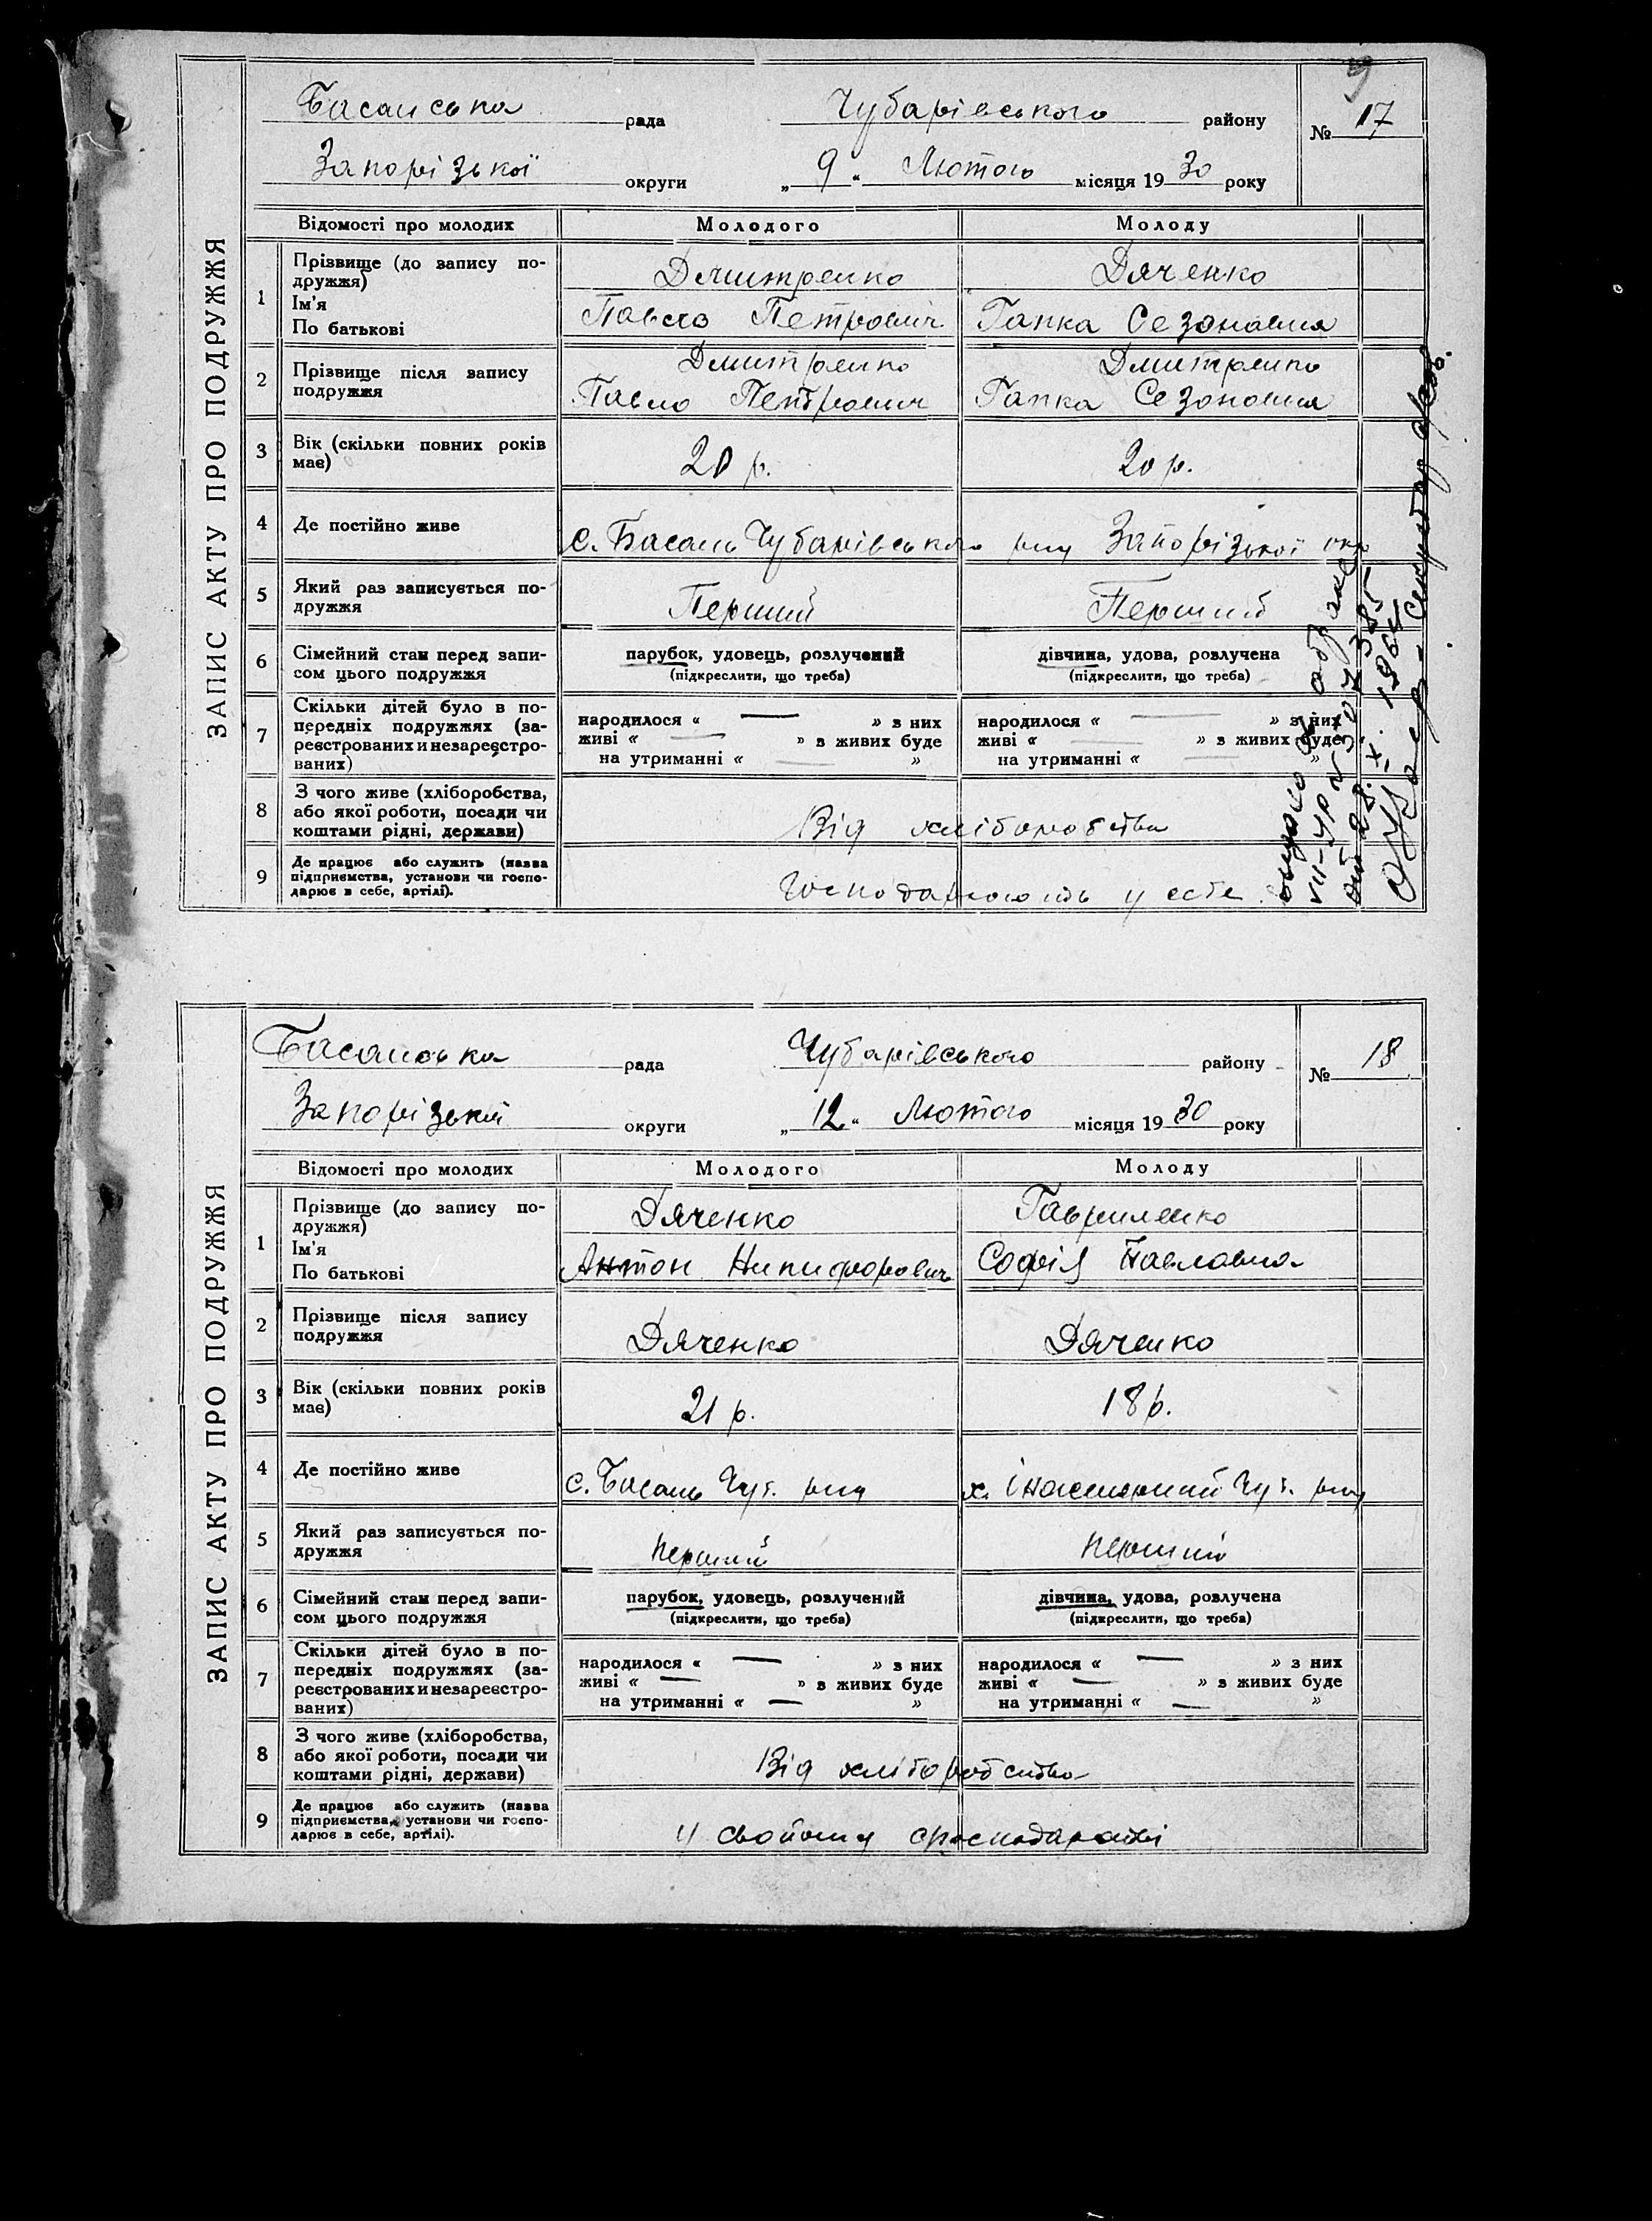 9
Басанська рада Чубарівського району № 17
Запорізької округи „9“ Лютого місяця 1930 року
ЗАПИС АКТУ ПРО ПОДРУЖЖЯ
Відомості про молодих Молодого Молоду
1 Прізвище (до запису по-
дружжя)
Ім'я
По батькові
Дмитренко Дяченко
Павло Петрович Гапка Сезоновна
2 Прізвище після запису
подружжя
Дмитренко Дмитренко
Павло Петрович Гапка Сезоновна
3 Вік (скільки повних років
має)
20 р. 20 р.
4 Де постійно живе
с. Басань Чубарівського р-ну Запорізької окр
5 Який раз записується по-
дружжя
Перший Перший
6 Сімейний стан перед запи-
сом цього подружжя
парубок, удовець, розлучений дівчина, удова, розлучена
(підкреслити, що треба) (підкреслити, що треба)
7 Скільки дітей було в по-
передніх подружжях (за-
реєстрованих и незареєстро-
ваних)
народилося « — » з них народилося « — » з них
живі « — » з живих буде живі « — » з живих буде
на утриманні « — » на утриманні « — »
8 З чого живе (хліборобства,
або якої роботи, посади чи
коштами рідні, держави)
Від хліборобства
9 Де працює або служить (назва
підприємства, установи чи госпо-
дарює в себе, артілі).
Господарюють у себе
VIII-УР № 307385
28.X. 1964
ЗАПИС АКТУ ПРО ПОДРУЖЖЯ
Басанська рада Чубарівського району № 18
Запорізької округи „12“ Лютого місяця 1930 року
Відомості про молодих Молодого Молоду
1 Прізвище (до запису по-
дружжя)
Ім'я
По батькові
Дяченко Гавриленко
Антон Никифорович Софія Павловна
2 Прізвище після запису
подружжя
Дяченко Дяченко
3 Вік (скільки повних років
має)
21 р. 18 р.
4 Де постійно живе
с. Басань Чуб. р-ну х. Чуб. р-ну
5 Який раз записується по-
дружжя
перший перший
6 Сімейний стан перед запи-
сом цього подружжя
парубок, удовець, розлучений дівчина, удова, розлучена
(підкреслити, що треба) (підкреслити, що треба)
7 Скільки дітей було в по-
передніх подружжях (за-
реєстрованих и незареєстро-
ваних)
народилося « — » з них народилося « — » з них
живі « — » з живих буде живі « — » з живих буде
на утриманні « — » на утриманні « — »
8 З чого живе (хліборобства,
або якої роботи, посади чи
коштами рідні, держави)
Від хліборобства
9 Де працює або служить (назва
підприємства, установи чи госпо-
дарює в себе, артілі).
у свойому господарстві